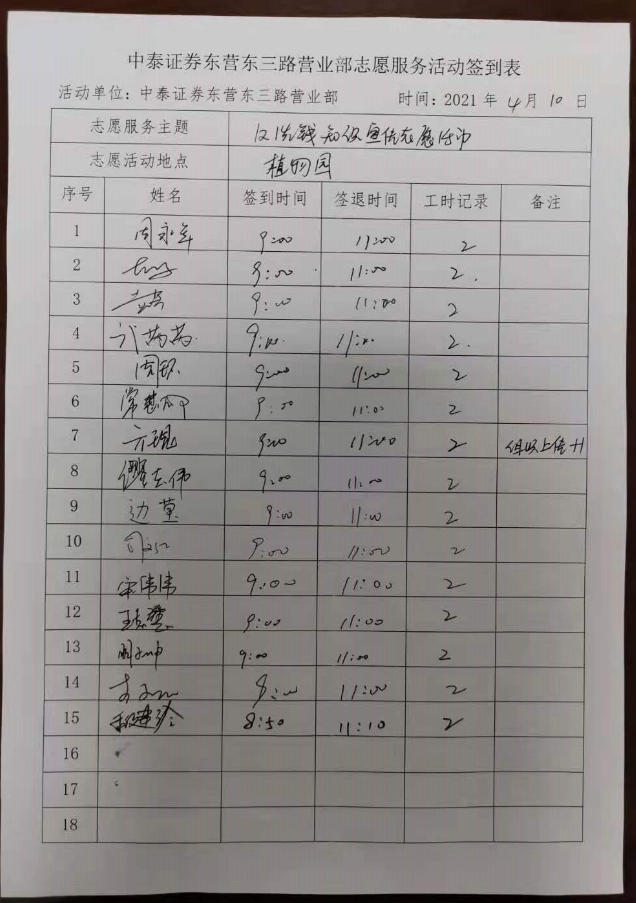 中泰证券东营东三路营业部志愿服务活动签到表
活动单位：中泰证券东营东三路营业部 时间：2021 年 4 月 10 日
志愿服务主题 反洗钱知识宣传志愿活动
志愿活动地点 植物园
序号 姓名 签到时间 签退时间 工时记录 备注
1 周永军 9:00 11:00 2
2 9:00 11:00 2
3 9:00 11:00 2
4 9:00 11:00 2
5 周 9:00 11:00 2
6 常 9:00 11:00 2
7 9:00 11:00 2
8 志伟 9:00 11:00 2
9 边 9:00 11:00 2
10 9:00 11:00 2
11 宋伟伟 9:00 11:00 2
12 9:00 11:00 2
13 9:00 11:00 2
14 11:00 2
15 8:50 11:10 2
16
17
18